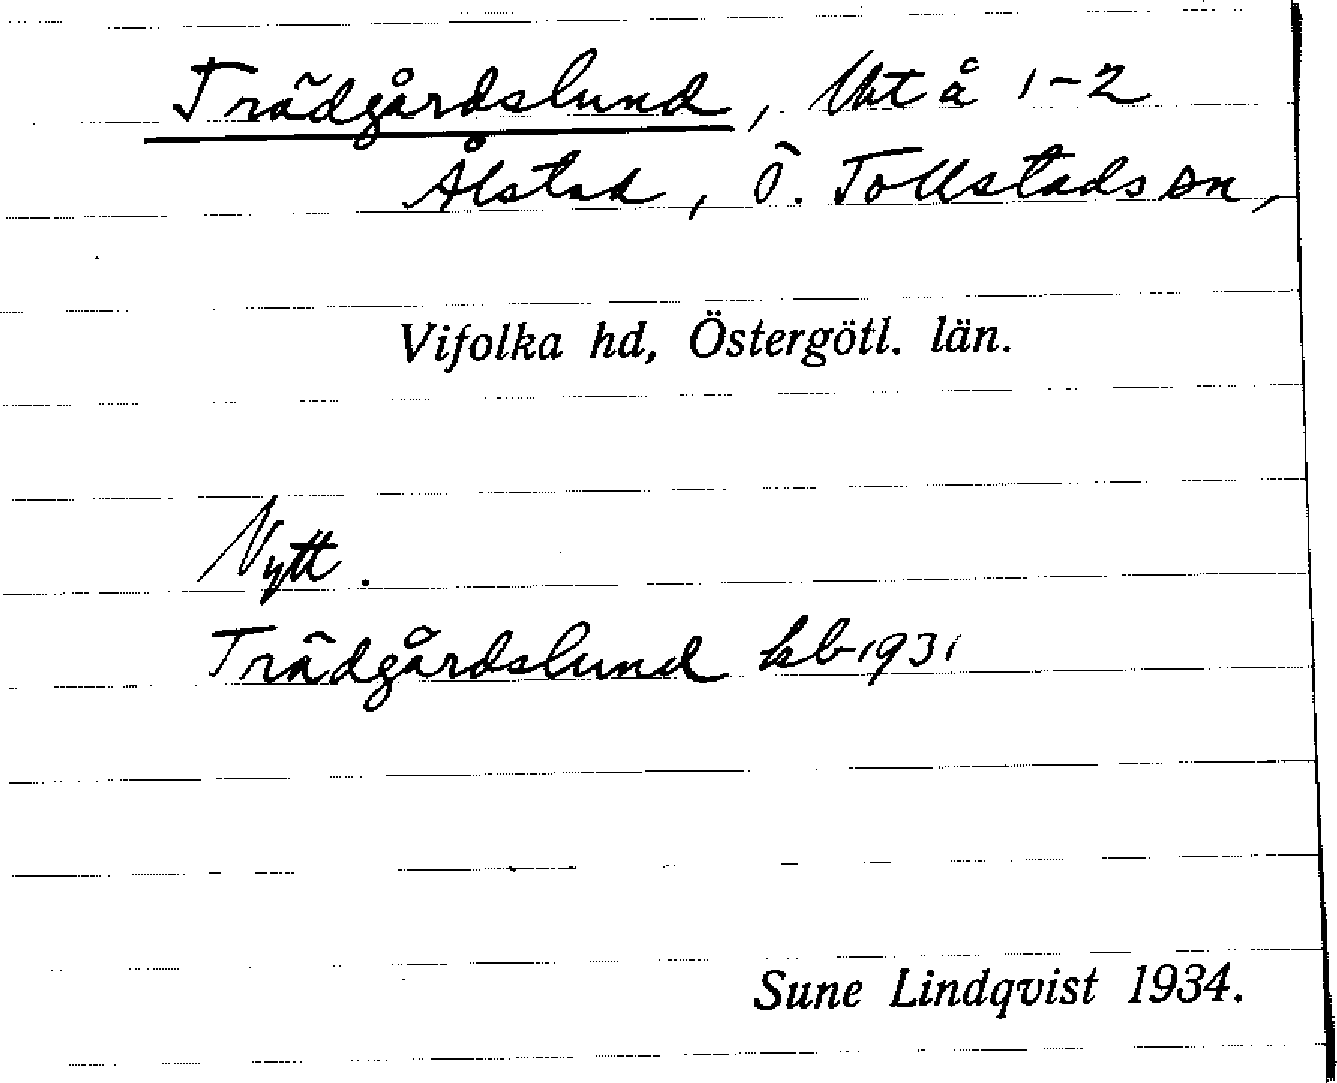 Trädgårdslund, Uht å 1-2
Ålstad, Ö. Tollstads sn,
Vifolka hd, Östergötl. län.
Nytt.
Trädgårdslund kb 1931
Sune Lindqvist 1934.